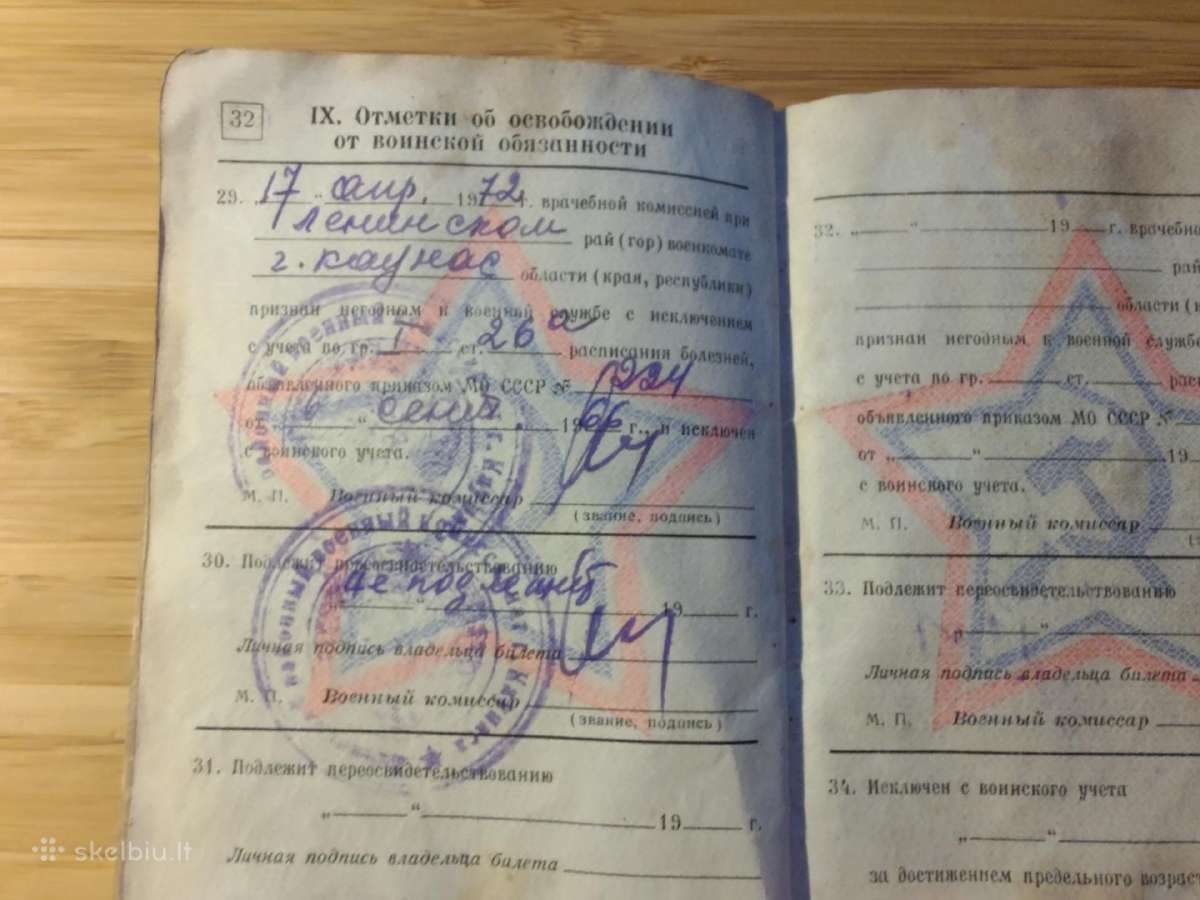 32
IX. Отметки об освобождении
от воинской обязанности
29. „17“ апр. 1972 г. врачебной комиссией при
Ленинском рай (гор) военкомате
г. Каунас области (края, республики)
признан негодным к военной службе с исключением
с учета по гр. I ст. 26а расписания болезней,
объявленного приказом МО СССР № 224
от „6“ сент. 1966 г., и исключен
с воинского учета.
М. П. Военный комиссар
(звание, подпись)
30. Подлежит переосвидетельствованию
не подлежит
„ “ 19 г.
Личная подпись владельца билета
М. П. Военный комиссар
(звание, подпись)
31. Подлежит переосвидетельствованию
„ “ 19 г.
Личная подпись владельца билета
32. „ “ 19 г. врачебно
рай
области (к
признан негодным к военной службе
с учета по гр. ст. рас
объявленного приказом МО СССР №
от „ “ 19
с воинского учета.
М. П. Военный комиссар
(з
33. Подлежит переосвидетельствованию
„ “
Личная подпись владельца билета
М. П. Военный комиссар
34. Исключен с воинского учета
„ “
за достижением предельного возраст
skelbiu.lt